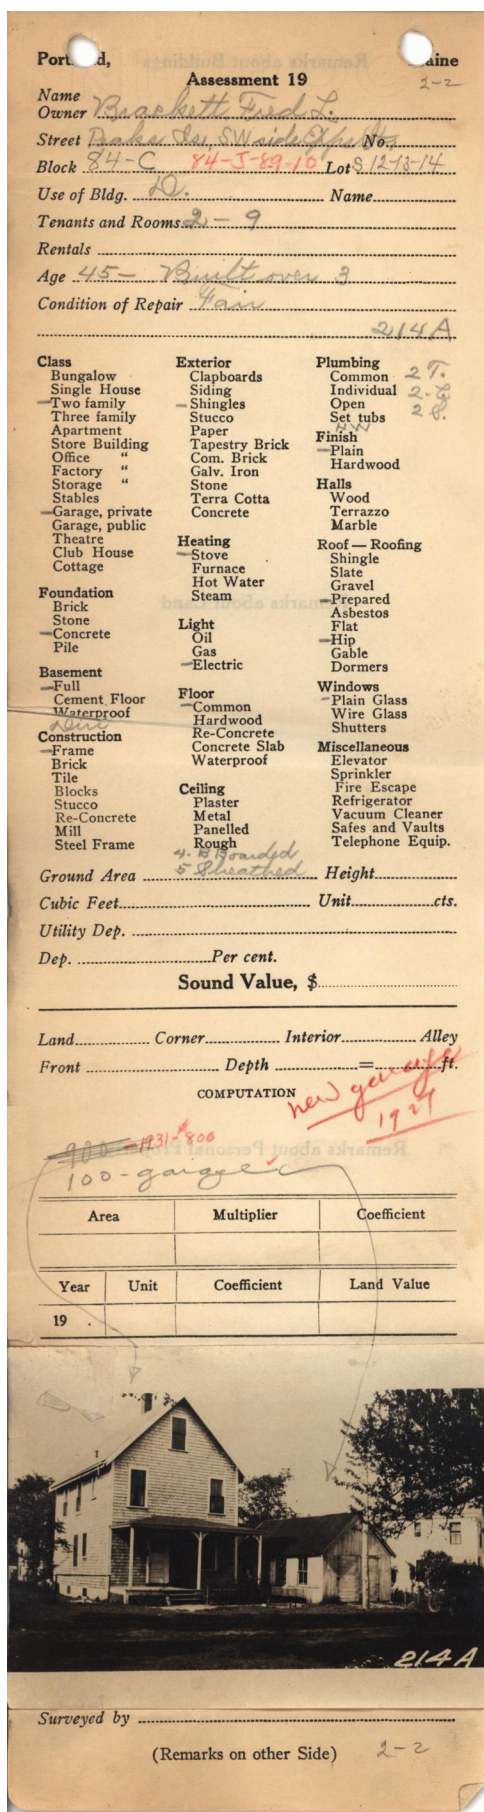 Portland, Maine
Assessment 19
2-2
Name
Owner Brackett, Fred L.
Street Peaks Isl, SW side No.
Block 84-C 84-J-89-10 Lot S 12-13-14
Use of Bldg. D. Name
Tenants and Rooms 2 - 9
Rentals
Age 45 - Built over 3
Condition of Repair Fair
214A
Class
Bungalow
Single House
Two family
Three family
Apartment
Store Building
Office "
Factory "
Storage "
Stables
Garage, private
Garage, public
Theatre
Club House
Cottage
Foundation
Brick
Stone
Concrete
Pile
Basement
Full
Cement Floor
Waterproof
Dirt
Construction
Frame
Brick
Tile
Blocks
Stucco
Re-Concrete
Mill
Steel Frame
Exterior
Clapboards
Siding
Shingles
Stucco
Paper
Tapestry Brick
Com. Brick
Galv. Iron
Stone
Terra Cotta
Concrete
Heating
Stove
Furnace
Hot Water
Steam
Light
Oil
Gas
Electric
Floor
Common
Hardwood
Re-Concrete
Concrete Slab
Waterproof
Ceiling
Plaster
Metal
Panelled
Rough
4-B Boarded
5 Sheathed
Plumbing
Common 2 T.
Individual
Open 2 S.
Set tubs
Finish
Plain
Hardwood
Halls
Wood
Terrazzo
Marble
Roof — Roofing
Shingle
Slate
Gravel
Prepared
Asbestos
Flat
Hip
Gable
Dormers
Windows
Plain Glass
Wire Glass
Shutters
Miscellaneous
Elevator
Sprinkler
Fire Escape
Refrigerator
Vacuum Cleaner
Safes and Vaults
Telephone Equip.
Ground Area Height
Cubic Feet Unit cts.
Utility Dep.
Dep. Per cent.
Sound Value, $
Land Corner Interior Alley
Front Depth = ft.
COMPUTATION
new garage
1927
900 - 1931 - $800
100 - garage
Area Multiplier Coefficient
Year Unit Coefficient Land Value
19 .
214A
Surveyed by
(Remarks on other Side) 2-2